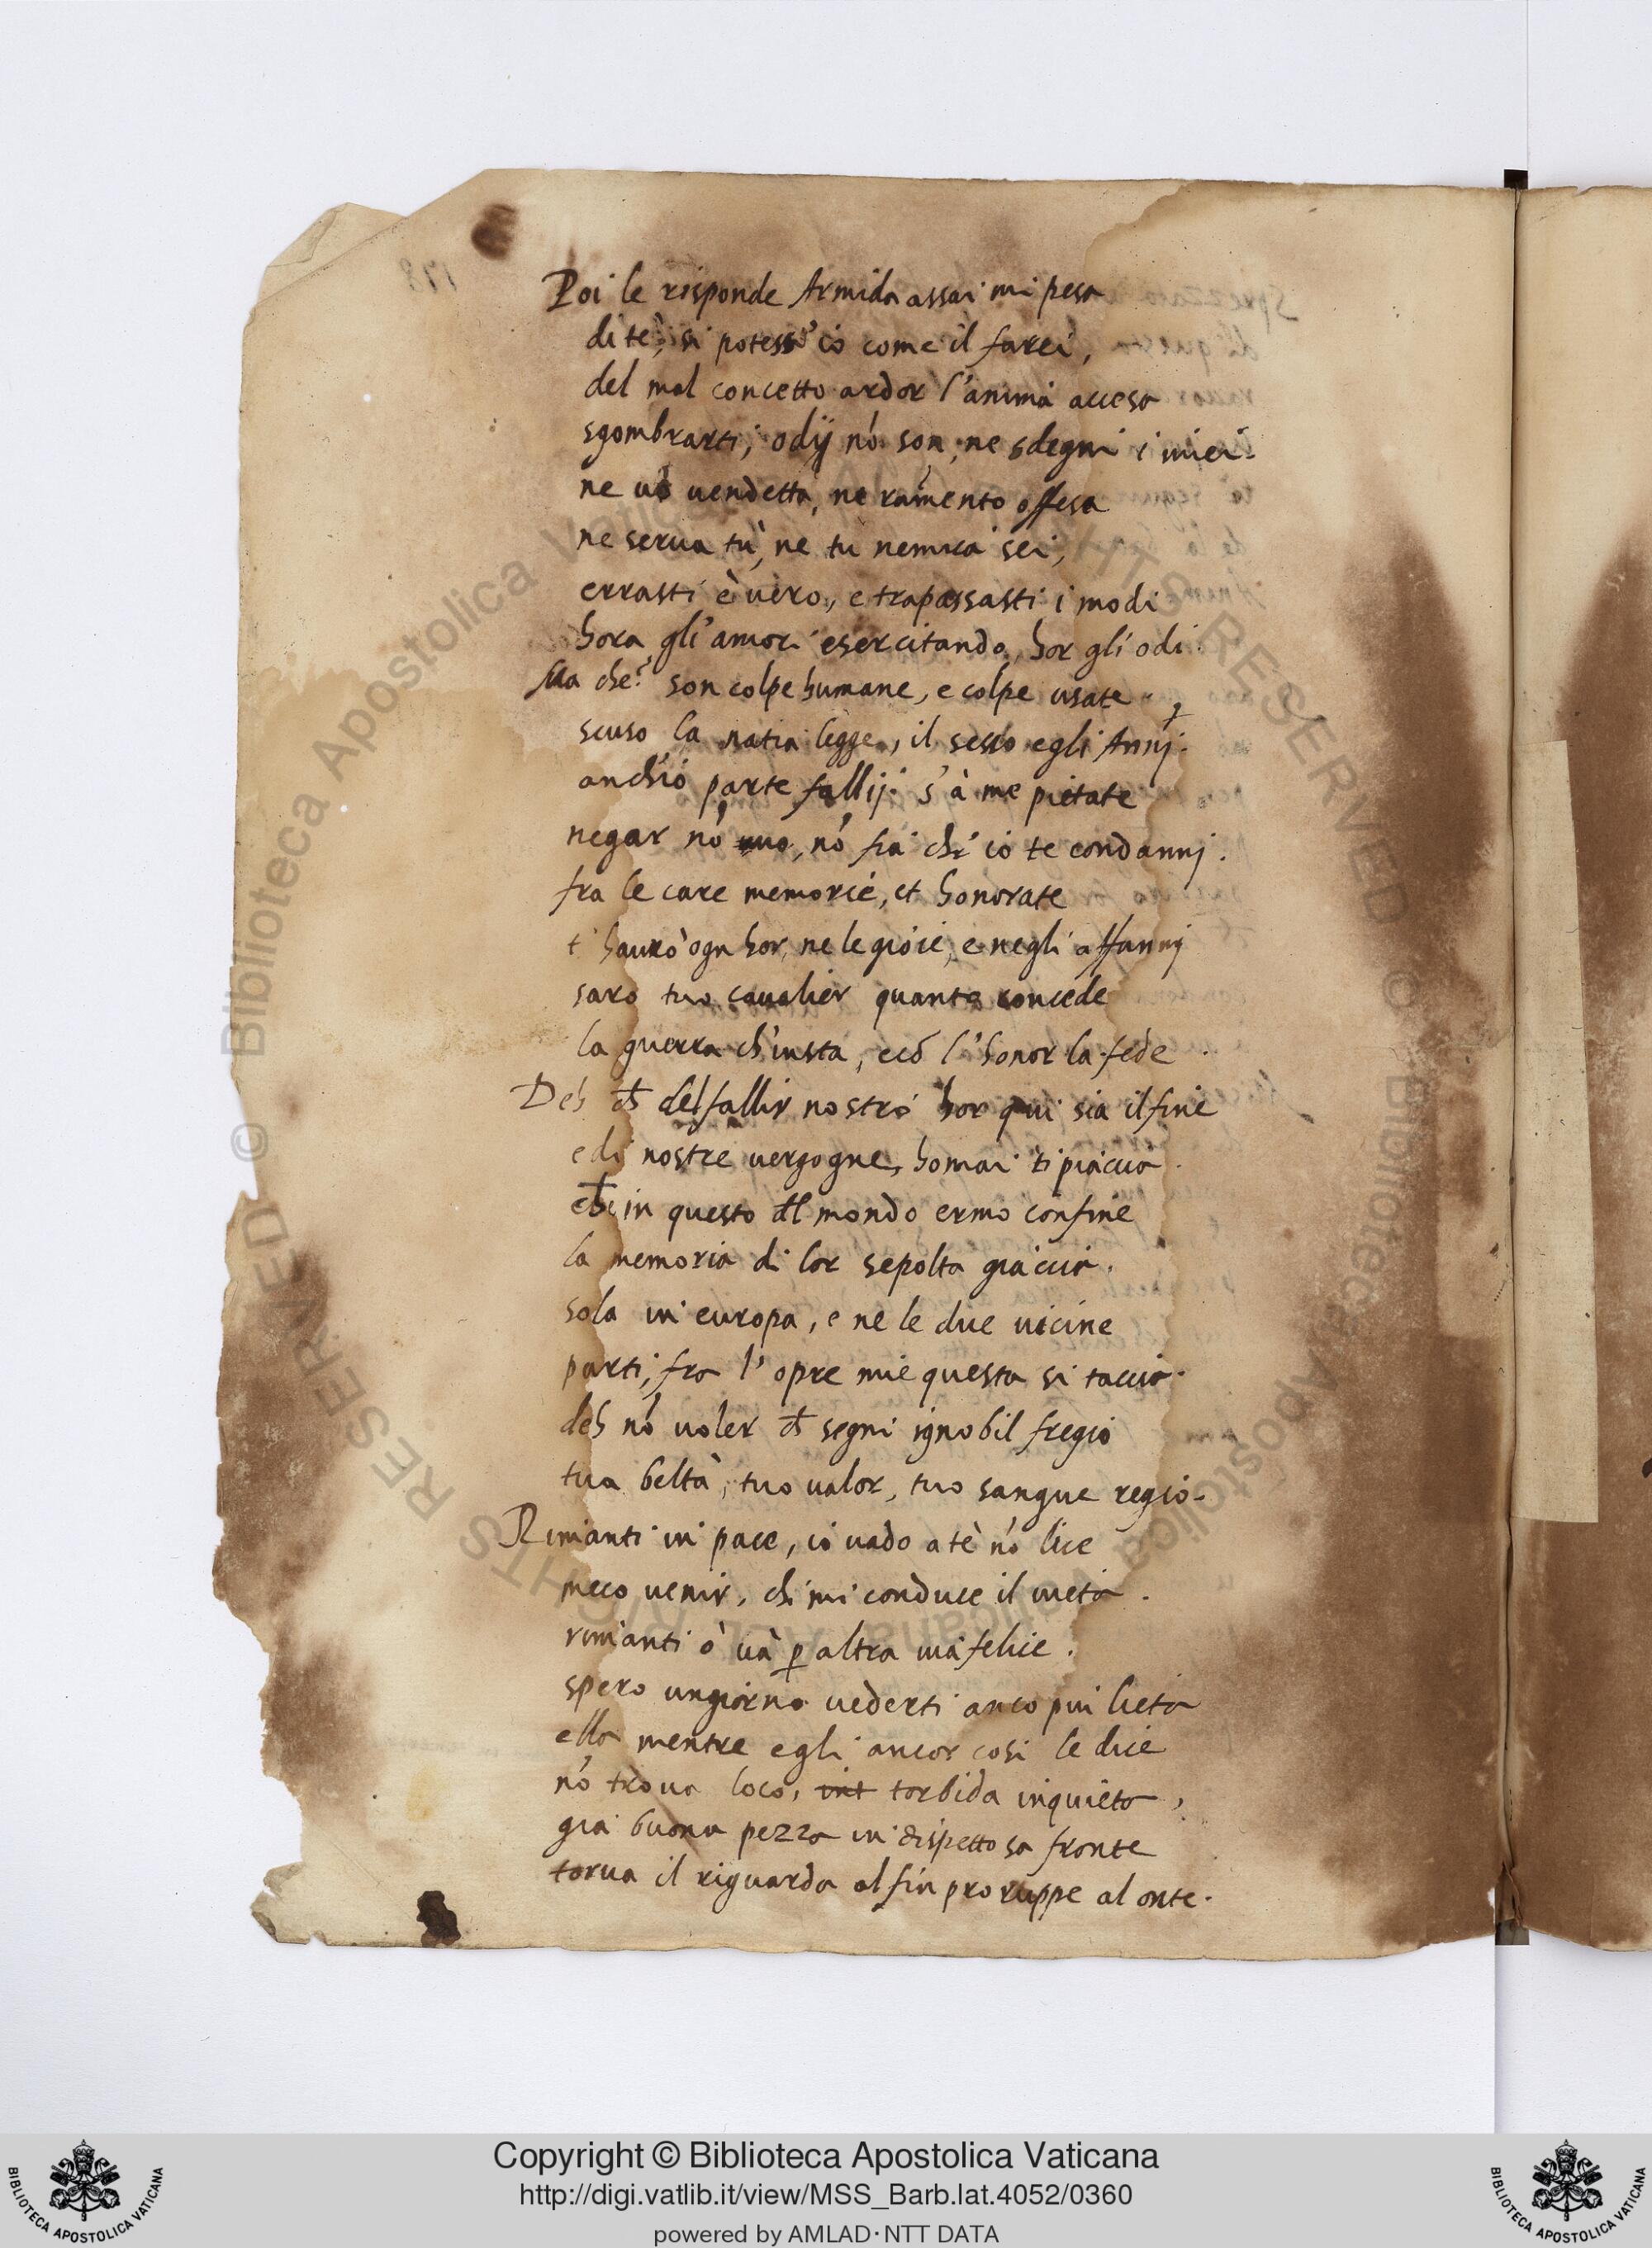 Poi le risponde Armida assai mi pesa
di te, si potess'io come il farei,
del mal concetto ardor l'anima accesa
sgombrarti, odij nõ son, ne sdegni i miei.
ne uò uendetta, ne ramento offesa
ne serua tù, ne tu nemica sei,
errasti è uero, e trapassasti i modi
hora gli'amori esercitando, hor gli odi.
Ma che? son colpe humane, e colpe usate
scuso la natia legge, il sesso e gli Annj.
anch'io parte fallij. s'à me pietate
negar nõ uuo, nõ fia ch'io te condannj.
fra le care memorie, et honorate
t'haurò ogn hor, ne le gioie, e negli affannj
sarò tuo caualier quanto concede
la guerra ch'insta, e cõ l'honor la fede
Deh ch̃ del fallir nostro hor qui sia il fine
e di nostre uergogne, homai ti piaccia.
ch̃ in questo dl mondo ermo confine
la memoria di lor sepolta giaccia.
sola in europa, e ne le due uicine
parti, fra l'opre mie questa si taccia.
deh nõ uoler ch̃ segni ignobil fregio
tua beltà, tuo ualor, tuo sangue regio.
Rimanti in pace, io uado a tè nõ lice
meco uenir, chi mi conduce il uieta.
rimanti ò uà ꝑ altra uia felice.
spero un giorno uederti anco piu lieta
ella mentre egli ancor cosi le dice
nõ troua loco, int torbida inquieta,
gia buona pezza in dispettosa fronte
torua il riguarda al fin proruppe al onte.
Copyright © Biblioteca Apostolica Vaticana
http://digi.vatlib.it/view/MSS_Barb.lat.4052/0360
powered by AMLAD·NTT DATA